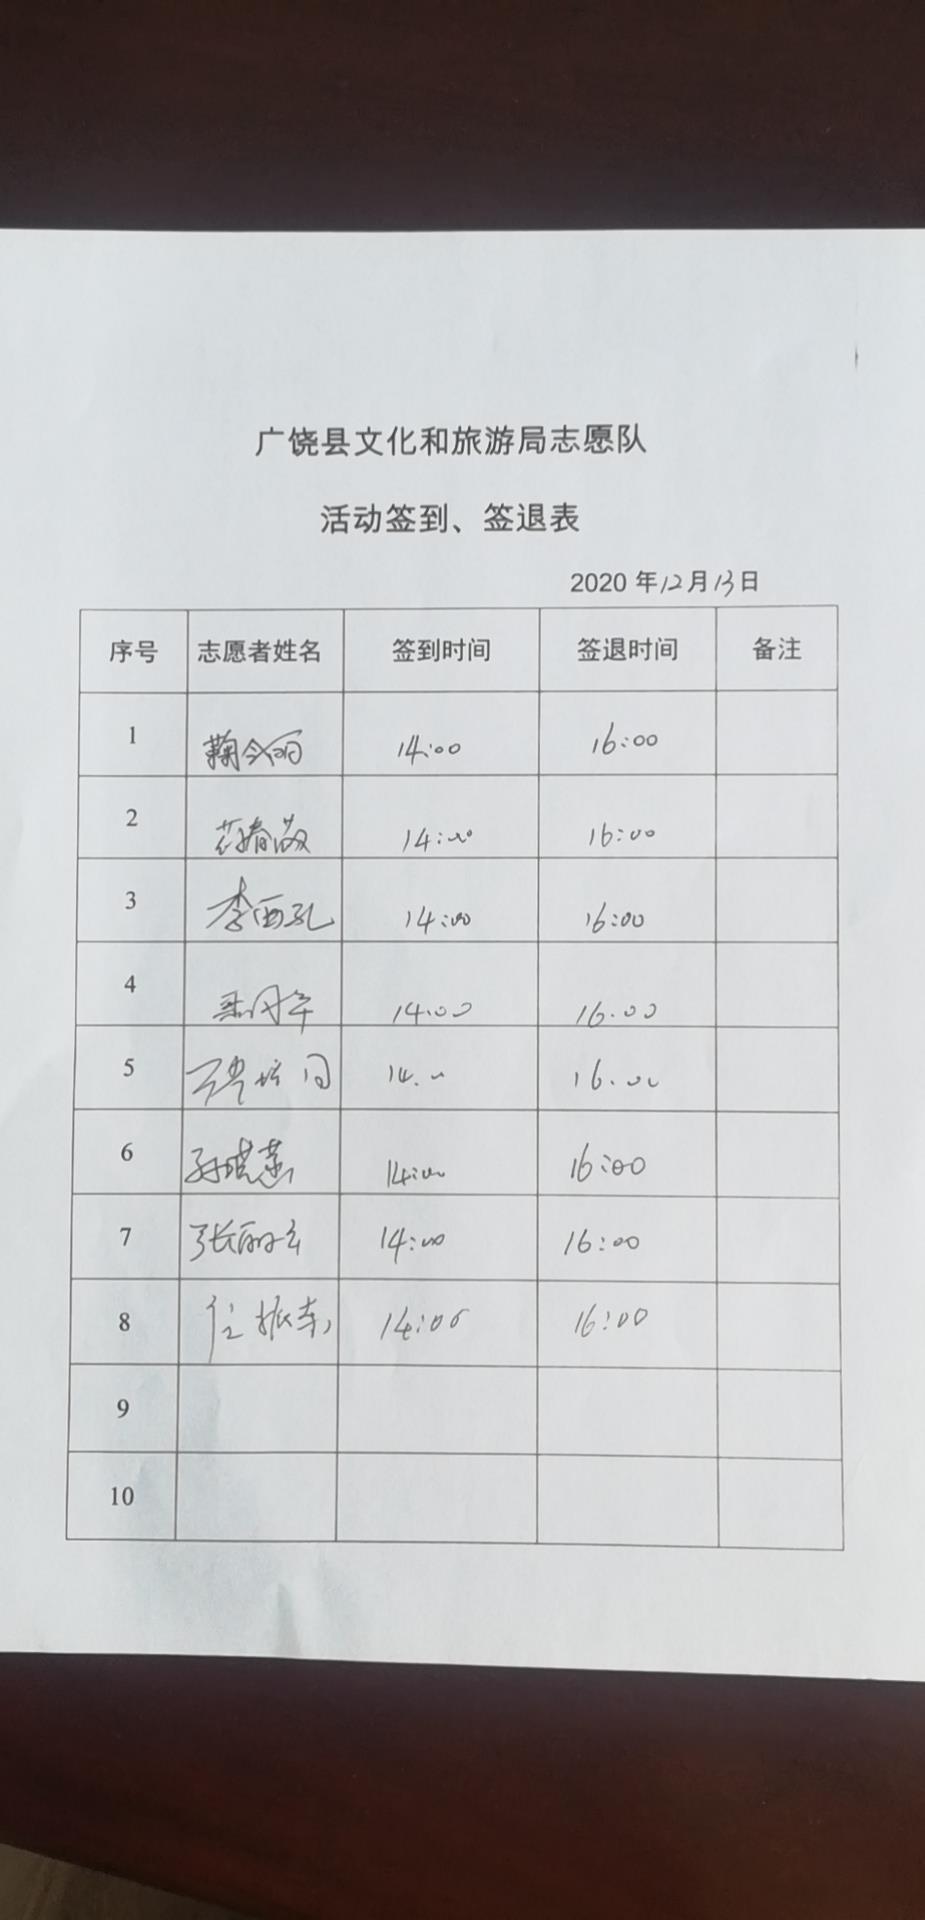 广饶县文化和旅游局志愿队
活动签到、签退表
2020 年12月13日
序号 志愿者姓名 签到时间 签退时间 备注
1 14:00 16:00
2 14:00 16:00
3 李西孔 14:00 16:00
4 14.00 16.00
5 14. 16.00
6 孙晓燕 14:00 16:00
7 张丽 14:00 16:00
8 任振东 14:00 16:00
9
10